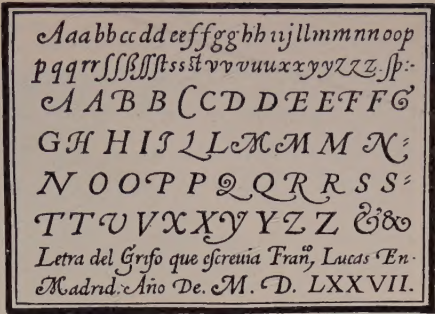 Aaabbccddeeffgghhiijllmmnnoop
pqqrrſſſßſſſtssſtvvvuuxxyyzzz.ſp:-
A A B B C C D D E E F F G
G H H I I L L M M M N:
N O O P P Q Q R R S S:
T T V V X X Y Y Z Z & &
Letra del Grifo que eſcreuia Franͦ, Lucas En-
Madrid. Año De. M. D. LXXVII.